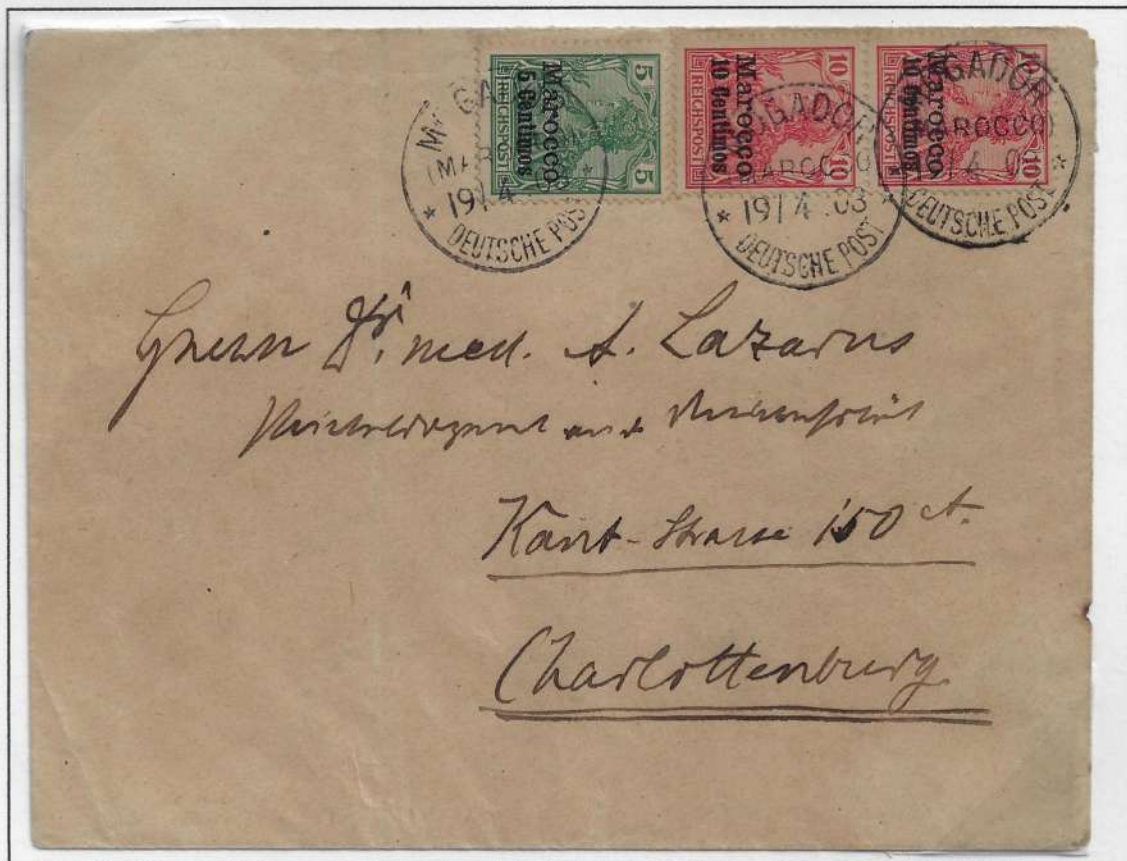 5
Marocco
5 Centimos
REICHSPOST
5
10
Marocco
10 Centimos
REICHSPOST
10
10
Marocco
10 Centimos
REICHSPOST
10
MOGADOR
(MAROCCO)
19/4 03
* DEUTSCHE POST *
MOGADOR
(MAROCCO)
19/4 03
* DEUTSCHE POST *
MOGADOR
(MAROCCO)
19/4 03
* DEUTSCHE POST *
Herrn Dr. med. A. Lazarus
Kant-Strasse 150 A.
Charlottenburg